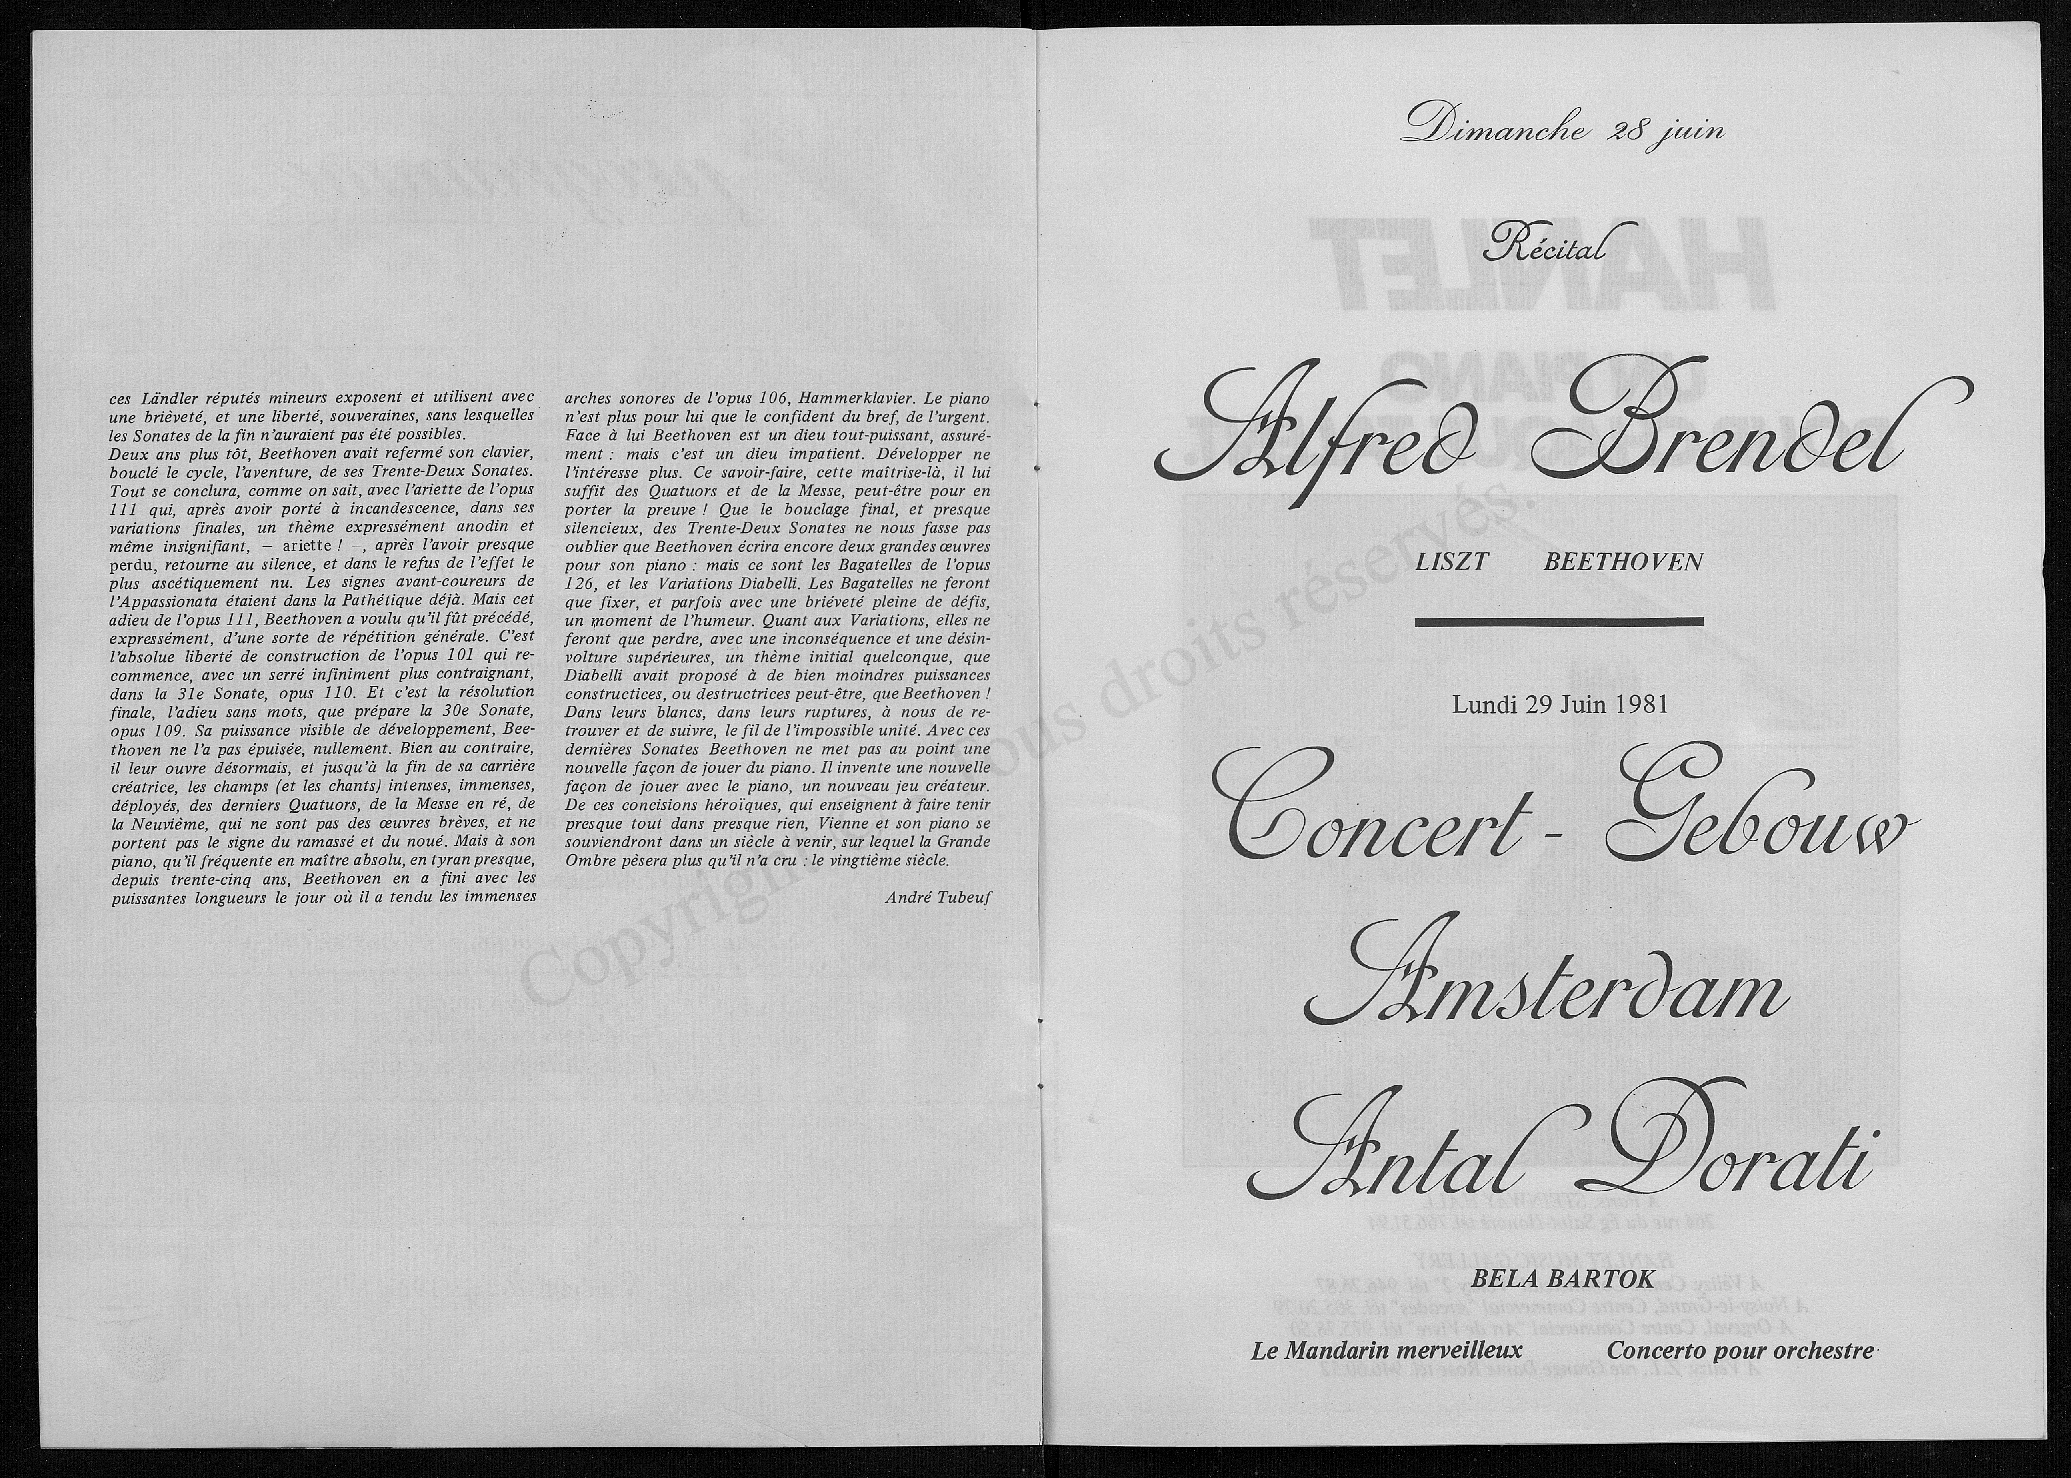 ces Ländler réputés mineurs exposent et utilisent avec
une brièveté, et une liberté, souveraines, sans lesquelles
les Sonates de la fin n'auraient pas été possibles.
Deux ans plus tôt, Beethoven avait refermé son clavier,
bouclé le cycle, l'aventure, de ses Trente-Deux Sonates.
Tout se conclura, comme on sait, avec l'ariette de l'opus
111 qui, après avoir porté à incandescence, dans ses
variations finales, un thème expressément anodin et
même insignifiant, — ariette ! —, après l'avoir presque
perdu, retourne au silence, et dans le refus de l'effet le
plus ascétiquement nu. Les signes avant-coureurs de
l'Appassionata étaient dans la Pathétique déjà. Mais cet
adieu de l'opus 111, Beethoven a voulu qu'il fût précédé,
expressément, d'une sorte de répétition générale. C'est
l'absolue liberté de construction de l'opus 101 qui re-
commence, avec un serré infiniment plus contraignant,
dans la 31e Sonate, opus 110. Et c'est la résolution
finale, l'adieu sans mots, que prépare la 30e Sonate,
opus 109. Sa puissance visible de développement, Bee-
thoven ne l'a pas épuisée, nullement. Bien au contraire,
il leur ouvre désormais, et jusqu'à la fin de sa carrière
créatrice, les champs (et les chants) intenses, immenses,
déployés, des derniers Quatuors, de la Messe en ré, de
la Neuvième, qui ne sont pas des œuvres brèves, et ne
portent pas le signe du ramassé et du noué. Mais à son
piano, qu'il fréquente en maître absolu, en tyran presque,
depuis trente-cinq ans, Beethoven en a fini avec les
puissantes longueurs le jour où il a tendu les immenses
arches sonores de l'opus 106, Hammerklavier. Le piano
n'est plus pour lui que le confident du bref, de l'urgent.
Face à lui Beethoven est un dieu tout-puissant, assuré-
ment : mais c'est un dieu impatient. Développer ne
l'intéresse plus. Ce savoir-faire, cette maîtrise-là, il lui
suffit des Quatuors et de la Messe, peut-être pour en
porter la preuve ! Que le bouclage final, et presque
silencieux, des Trente-Deux Sonates ne nous fasse pas
oublier que Beethoven écrira encore deux grandes œuvres
pour son piano : mais ce sont les Bagatelles de l'opus
126, et les Variations Diabelli. Les Bagatelles ne feront
que fixer, et parfois avec une briéveté pleine de défis,
un moment de l'humeur. Quant aux Variations, elles ne
feront que perdre, avec une inconséquence et une désin-
volture supérieures, un thème initial quelconque, que
Diabelli avait proposé à de bien moindres puissances
constructices, ou destructrices peut-être, que Beethoven !
Dans leurs blancs, dans leurs ruptures, à nous de re-
trouver et de suivre, le fil de l'impossible unité. Avec ces
dernières Sonates Beethoven ne met pas au point une
nouvelle façon de jouer du piano. Il invente une nouvelle
façon de jouer avec le piano, un nouveau jeu créateur.
De ces concisions héroïques, qui enseignent à faire tenir
presque tout dans presque rien, Vienne et son piano se
souviendront dans un siècle à venir, sur lequel la Grande
Ombre pèsera plus qu'il n'a cru : le vingtième siècle.
André Tubeuf
Dimanche 28 juin
Récital
Alfred Brendel
LISZT BEETHOVEN
Lundi 29 Juin 1981
Concert - Gebouw
Amsterdam
Antal Dorati
BELA BARTOK
Le Mandarin merveilleux Concerto pour orchestre